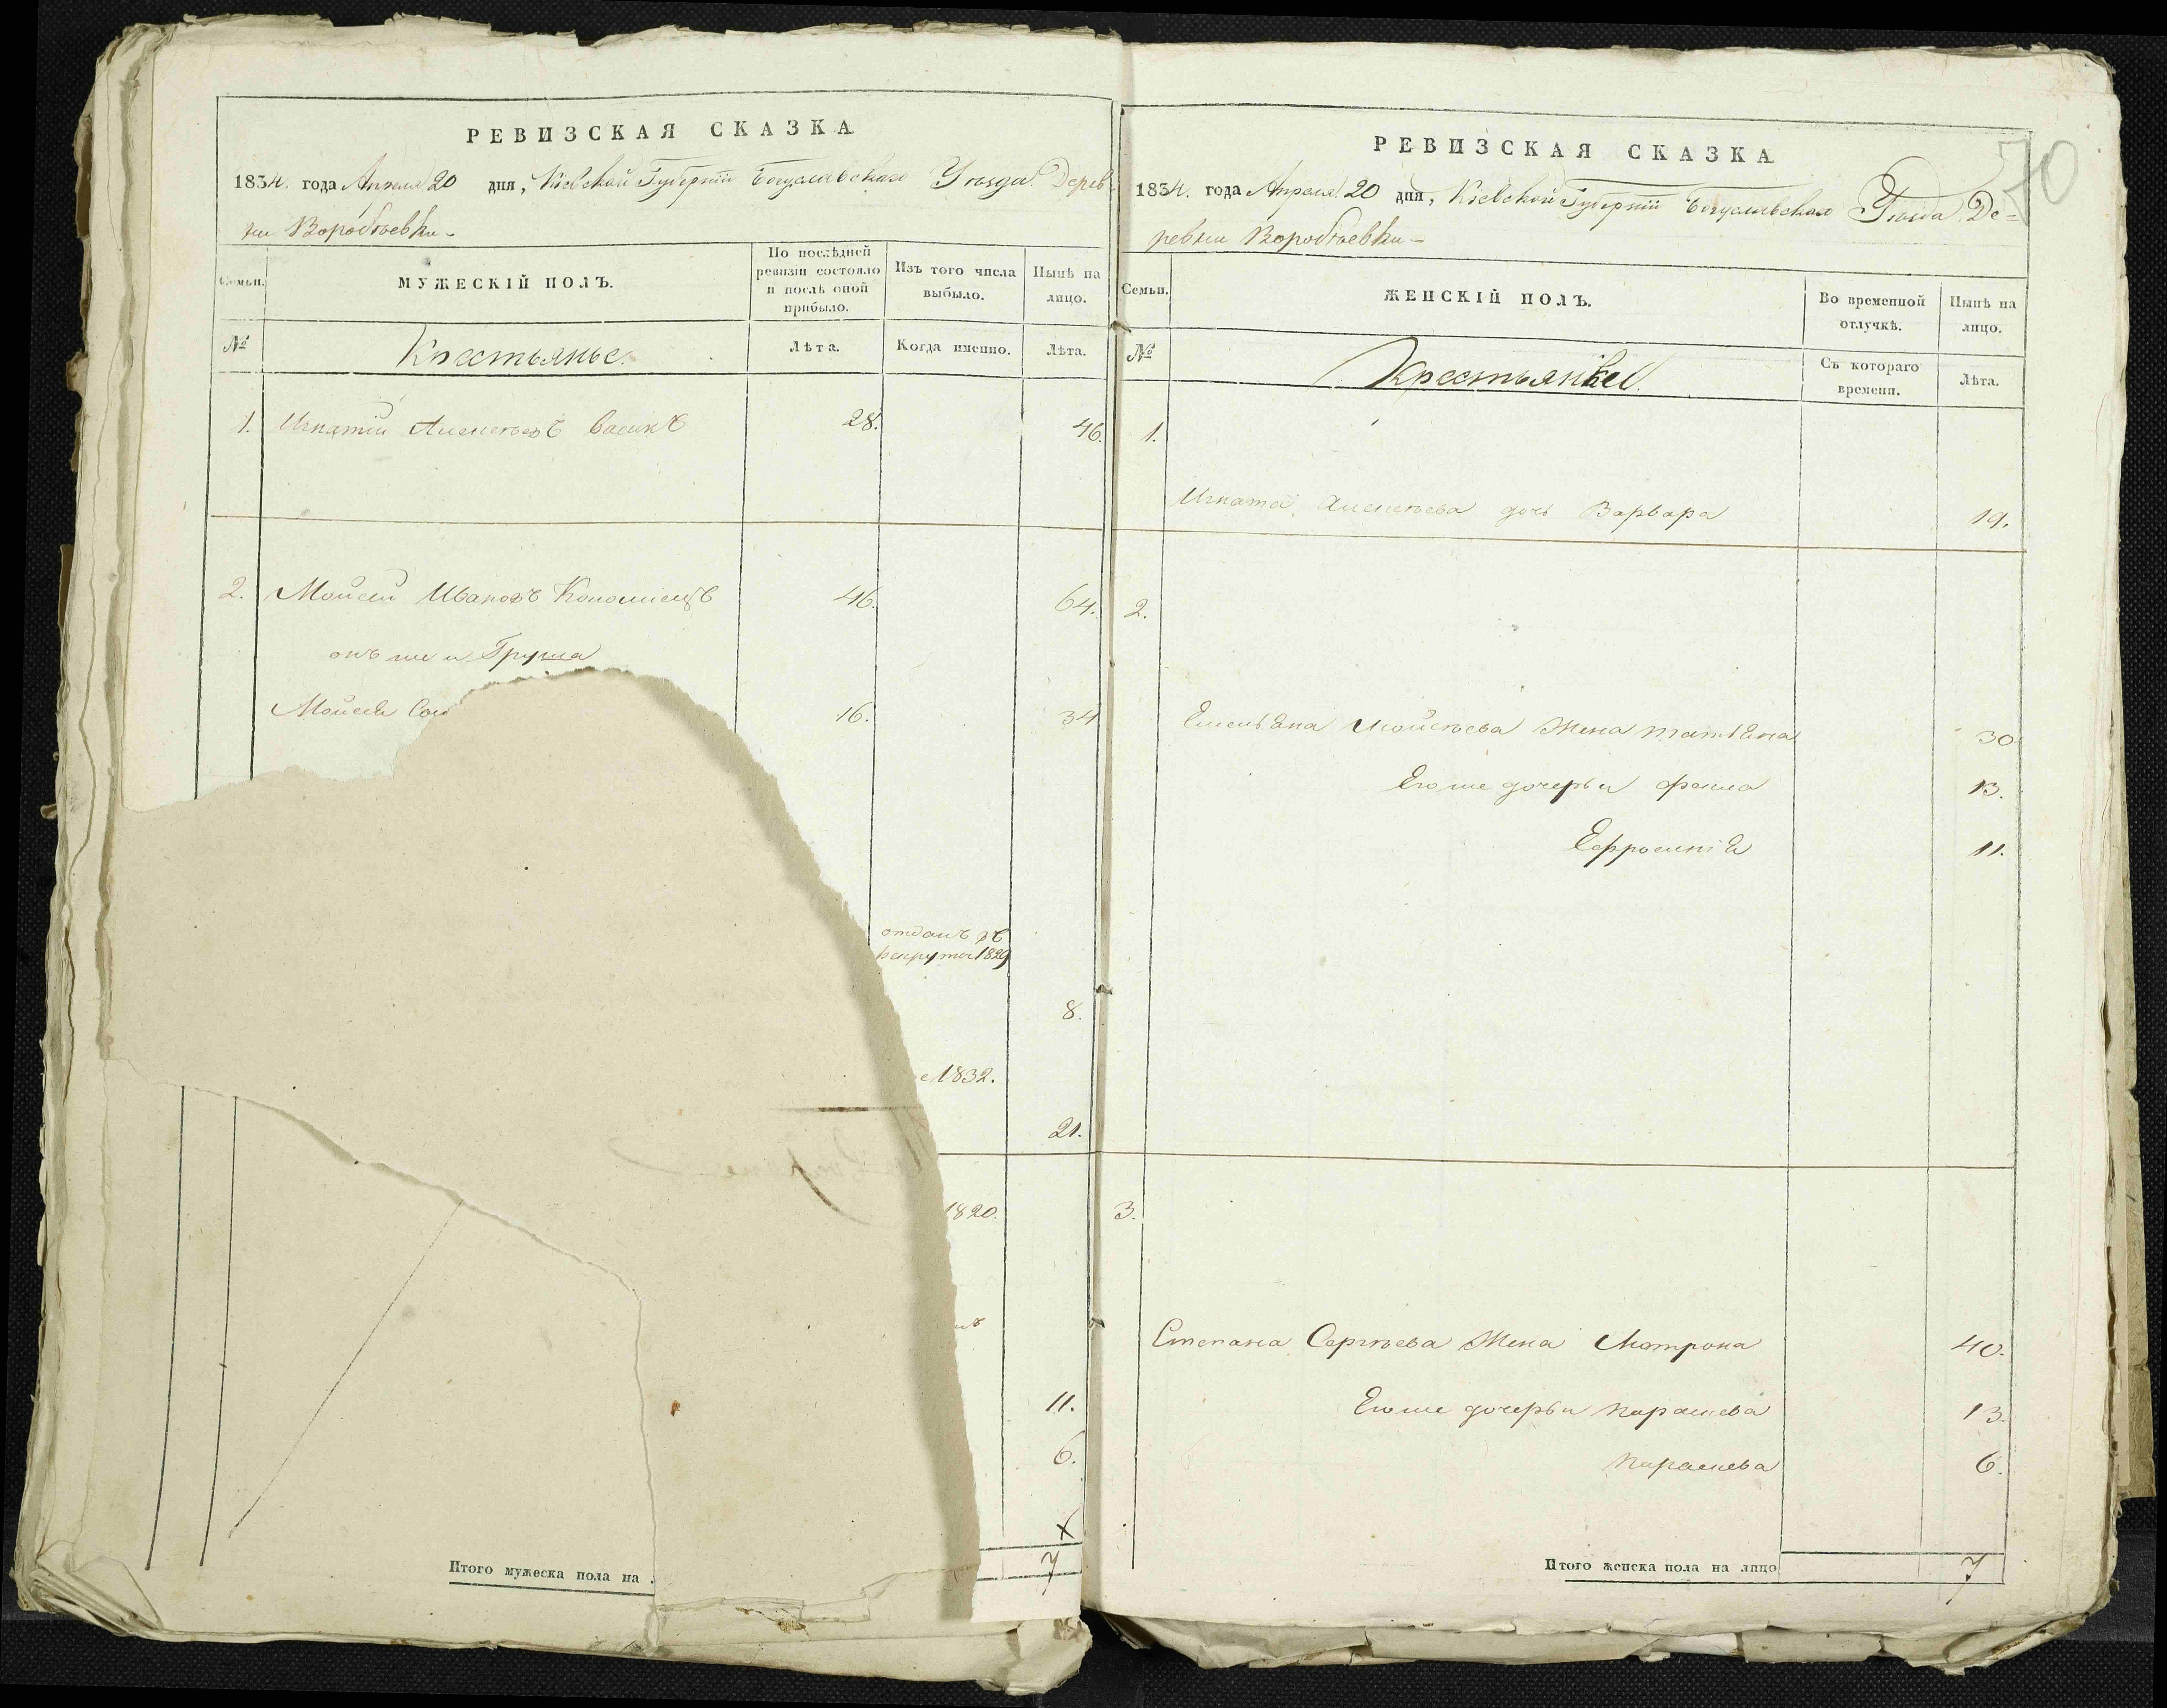 РЕВИЗСКАЯ СКАЗКА
1834. года Апреля 20 дня, Кіевской Губерніи Богуславскаго Уѣзда. Дерев-
ни Воробьевки-
Семьи.
МУЖЕСКІЙ ПОЛЪ.
По послѣдней
ревизіи состояло
и послѣ оной
прибыло.
Изъ того числа
выбыло.
Нынѣ на
лицо.
№
Крестьянье.
Лѣта.
Когда именно.
Лѣта.
1. Игнатій Алексѣевъ 28. 46.
2. Мойсей Ивановъ Коломіецъ 46. 64.
онъ же и Груша
Мойсея 16. 34
отданъ въ
рекруты 1829
8.
1832.
21.
1820.
11.
6.
Итого мужеска пола на
7
70
РЕВИЗСКАЯ СКАЗКА
1834. года Апреля 20 дня, Кіевской Губерніи Богуславскаго Уѣзда. Де=
ревни Воробьевки-
Семьи.
ЖЕНСКІЙ ПОЛЪ.
Во временной
отлучкѣ.
Нынѣ на
лицо.
№
Крестьянки.
Съ котораго
времени.
Лѣта.
1.
Игната Алексѣева дочь Варвара 19.
2.
Емельяна Мойсѣева Жена татьяна 30.
Его же дочерьи фекла 13.
Ефросинія 11.
3.
Степана Сергѣева Жена Матрона 40.
Его же дочерьи параскева 13.
параскева 6.
Итого женска пола на лицо 7